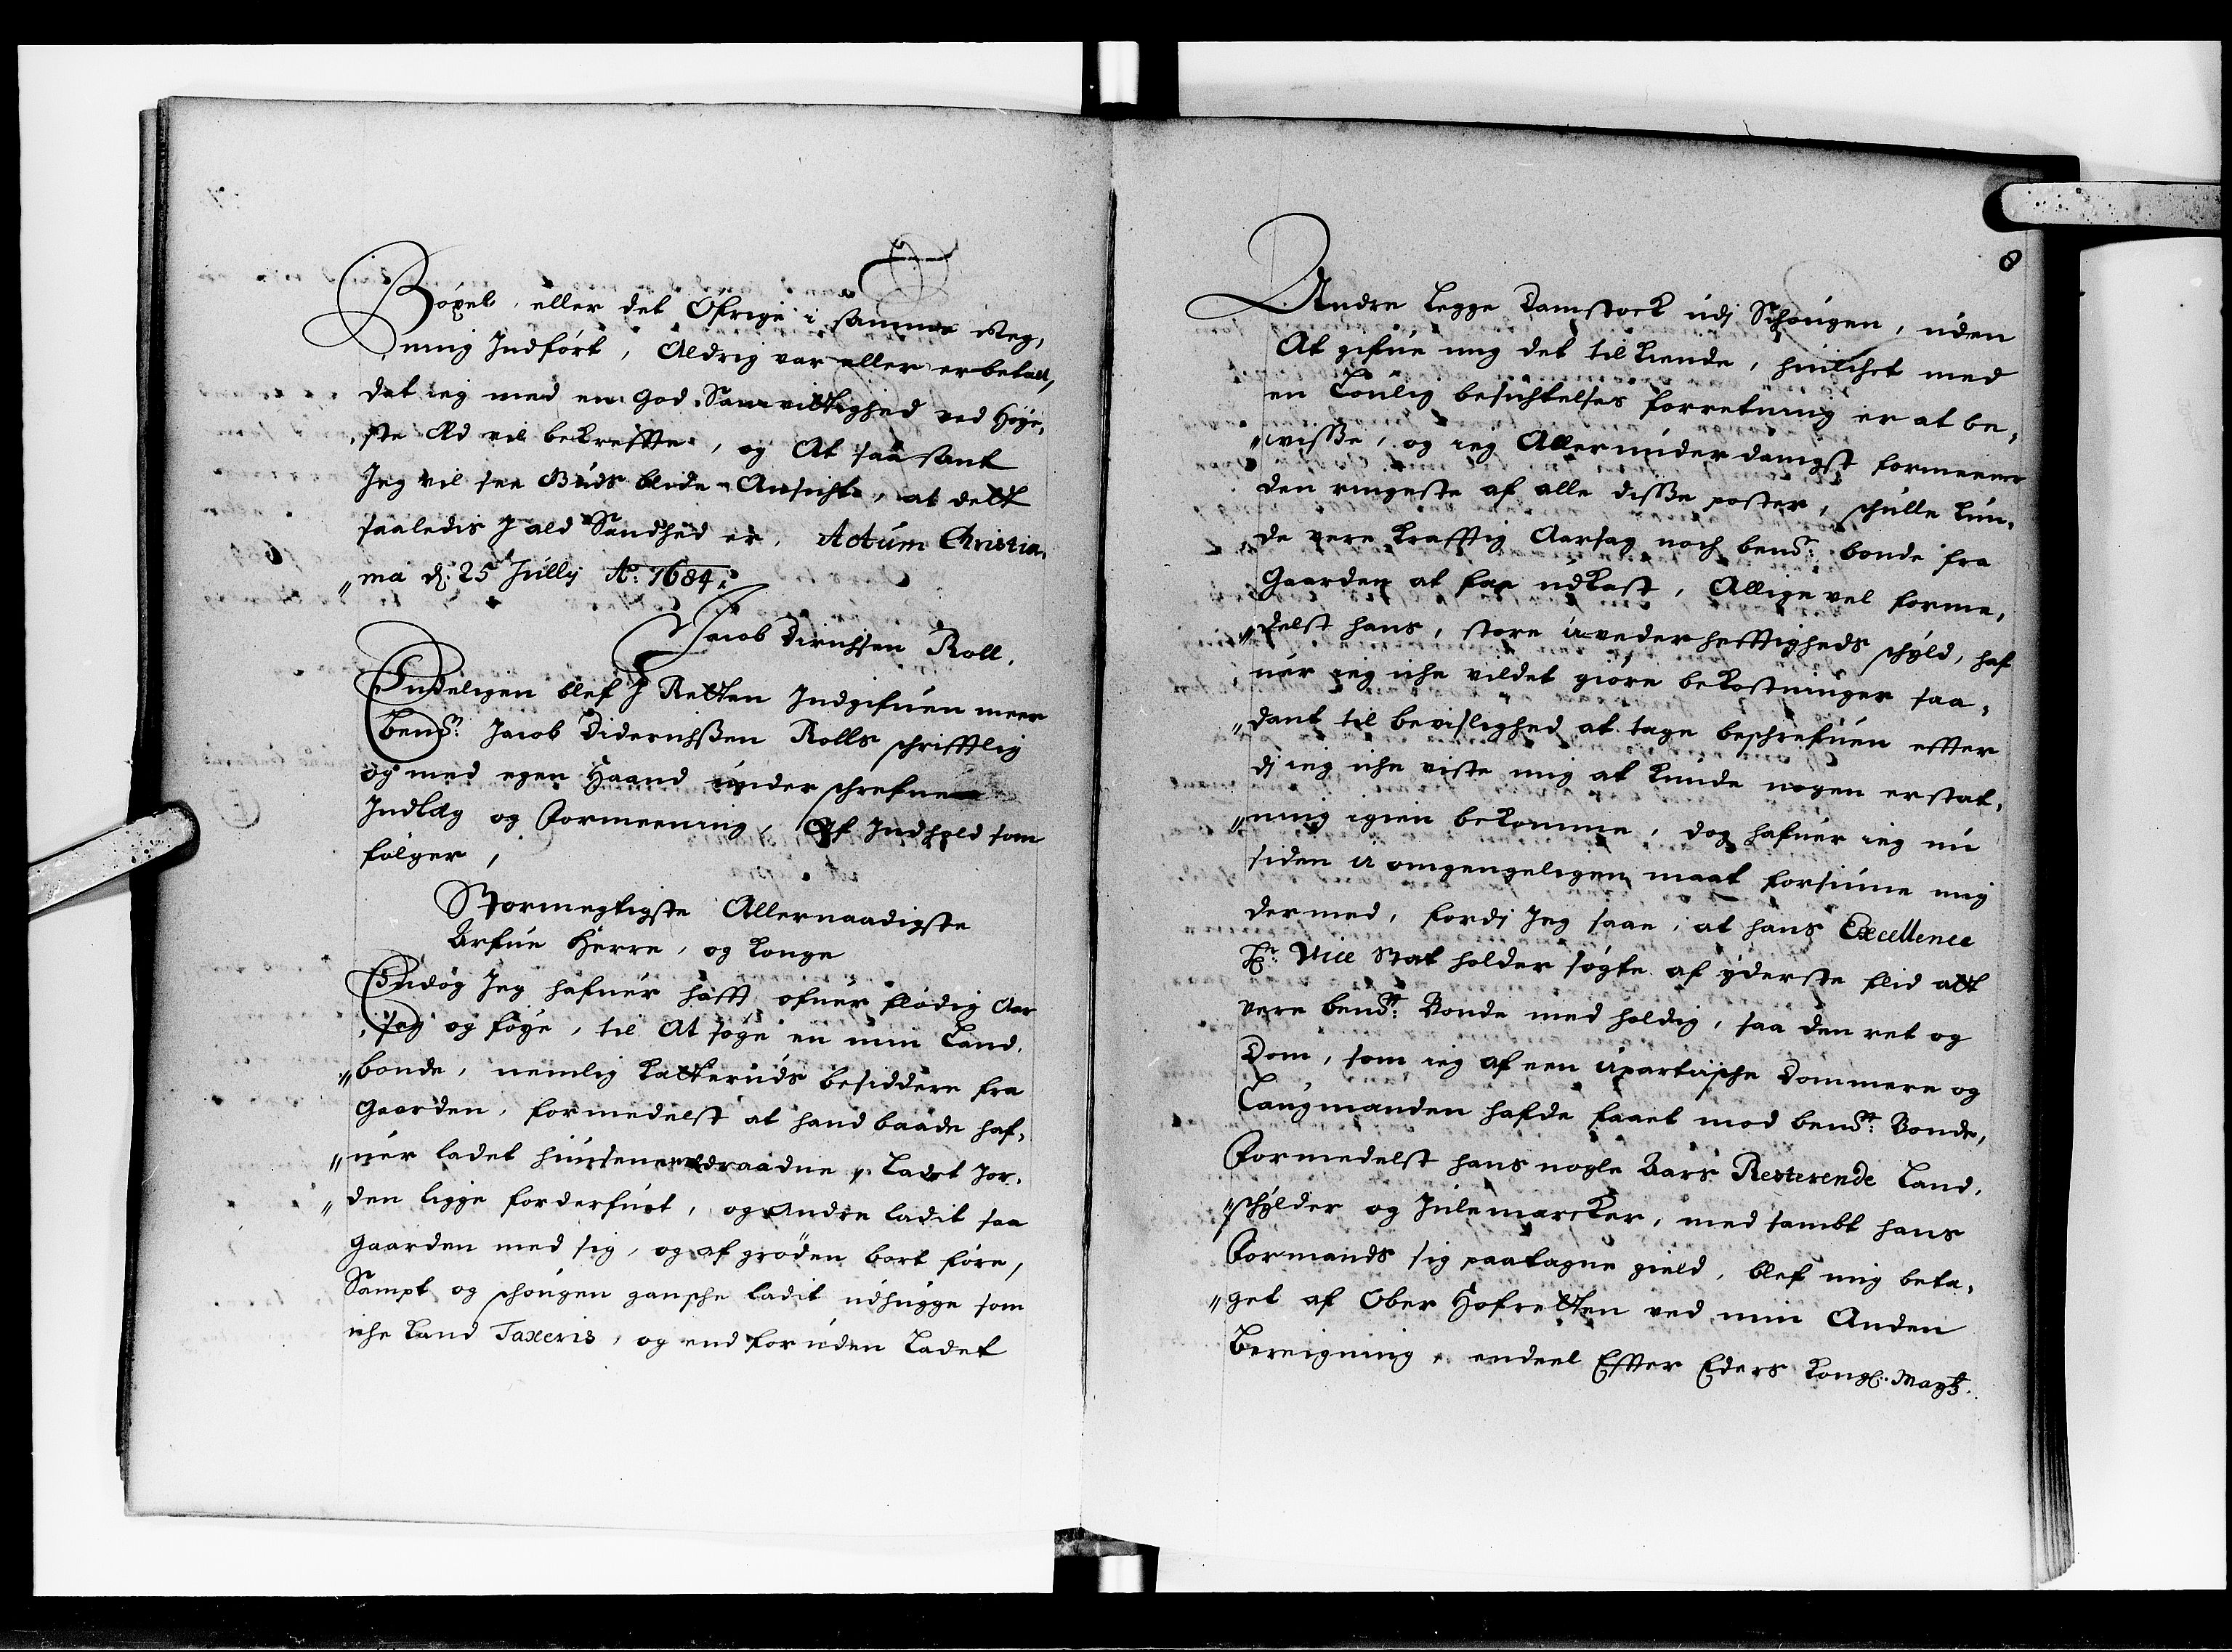 Böxel, eller det Öfrige i samme Reg,
ning Indfört, Aldrig var eller er betalt,
dat ieg med en God Samvittighed ved Höye,
ste Æd vil bekreffte, og At saa sant
Jeg vil see Guds blide Ansicht, at dett
saaledis J ald Sandhed er. Actum Christia,
„nia d: 25 Jullij Ao: 1684:
Jacob Dirichsen Roll.
Endeligen blef J Retten Indgifuen meer
bend: Jacob Diderichssen Rolls schrifftlig
og med egen Haand under schrefne
Indlæg og Formeening, Af Indhold som
fölger,
Stormegtigste Allernaadigste
Arfue Herre, og Konge
Endog Jeg hafuer hafft ofuer flödig Aar
sag og föye, til At söge en min Land,
„bonde, nemlig Katterüds besiddere fra
Gaarden, formedelst at hand baade haf,
„uer ladet huusene nedraadne, Ladet Jor,
„den ligge forderfuet, og Andre ladit saa
Gaarden med sig, og af gröden bort före,
Sampt og schougen gansche ladit udhugge som
iche kand Taxeris, og end foruden Ladet
8
Andre Legge Damstock udj Schougen, uden
At gifue mig det til kiende, huilchet med
en Louilig besichtelses forretning er at be,
„visse, og ieg Allerunderdanigst formeener
den ringeste af alle disse poster, schulle kun,
„de vere krafftig Aarsag noch bend: bonde fra
Gaarden at faa udkast, Alligevel forme,
„delst hans, store uvederhefftigheds schyld, haf
uer ieg iche vildet giöre bekostninger saa,
„dant til bevislighed at tage beschrefuen effter
dj ieg iche viste mig at kunde nogen erstat,
„ning igien bekomme, dog hafuer ieg nu
siden u omgengeligen maat forsiune mig
dermed, fordj Jeg saae, at hans Excellence
Hr: Vice Stat holder sögte af yderste flid att
vere bendt: Bonde med holdig, saa den ret og
Dom, som ieg af een upartiische Dommere og
Laugmanden hafde faaet mod bendt: Bonde,
Formedelst hans nogle Aars Resterende Land,
„schylder og Julemarcker, med sambt hans
Formands sig paatagne gield, blef mig beta,
„get af Ober Hofretten ved min Anden
Bereigning, endeel Effter Eders Kongl: Maytz.